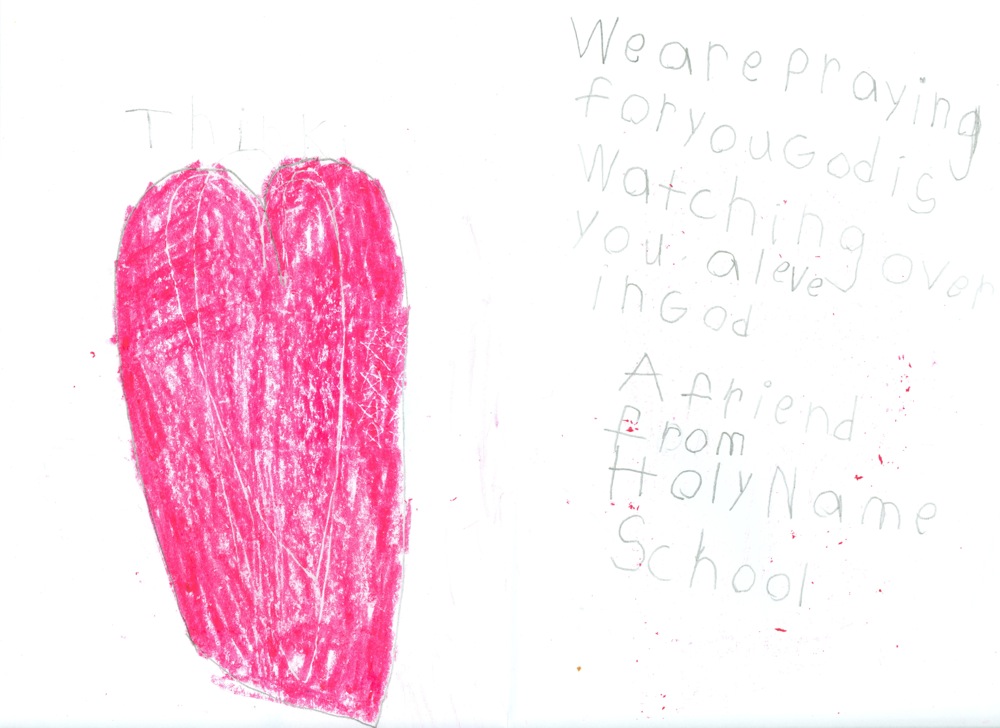 Think
We are Praying
for you God is
Watching over
you aleve
in God
A friend
from
Holy Name
School